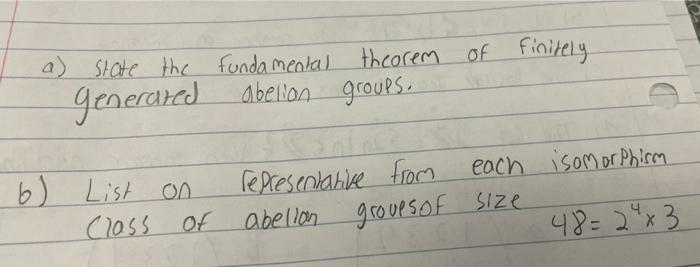 a) State the fundamental theorem of finitely
generated abelian groups.
b) List on representative from each isomorphism
Class of abelian groups of size 48 = 2⁴ x 3